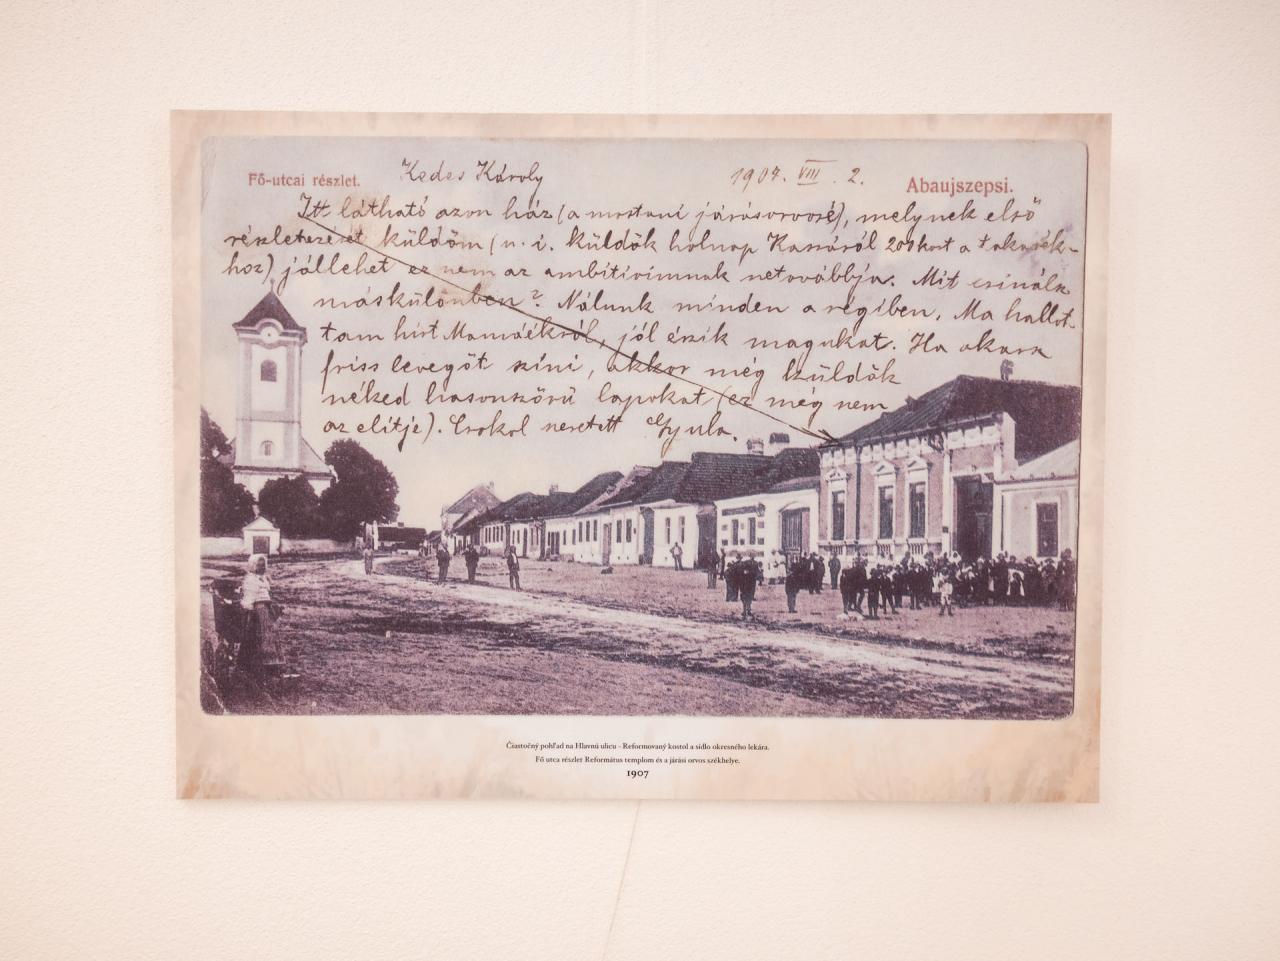 Fő-utcai részlet. Kedes Károly 1907. VIII. 2. Abaujszepsi.
Itt látható azon ház (a mostani járásorvosé), melynek első
részletezését küldöm (u. i. küldök holnap Kassáról 20 a takarék-
hoz) jóllehet ez nem az ambitióimnak netovábbja. Mit csinálsz
máskülönben? Nálunk minden a régiben. Ma hallot-
tam hírt Mamáékról, jól érzik magukat. Ha akarsz
friss levegőt színi, akkor még küldök
néked hasonszőrű lapokat (ez még nem
az elitje). Csókol szeretett Gyula.
Čiastočný pohľad na Hlavnú ulicu - Reformovaný kostol a sídlo okresného lekára.
Fő utca részlet Református templom és a járási orvos székhelye.
1907